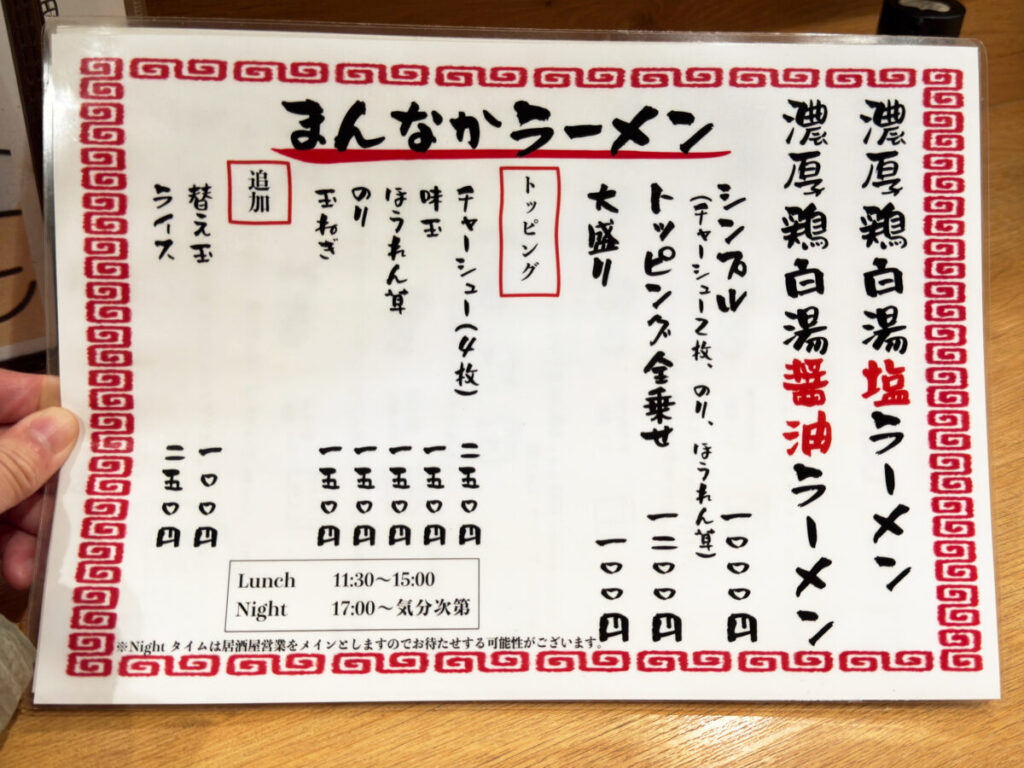 まんなかラーメン
濃厚鶏白湯塩ラーメン
濃厚鶏白湯醤油ラーメン
シンプル 一〇〇〇円
(チャーシュー2枚、のり、ほうれん草)
トッピング全乗せ 一二〇〇円
大盛り 一〇〇円
トッピング
チャーシュー(4枚) 二五〇円
味玉 一五〇円
ほうれん草 一五〇円
のり 一五〇円
玉ねぎ 一五〇円
追加
替え玉 一〇〇円
ライス 二五〇円
Lunch 11:30〜15:00
Night 17:00〜気分次第
※Nightタイムは居酒屋営業をメインとしますのでお待たせする可能性がございます。